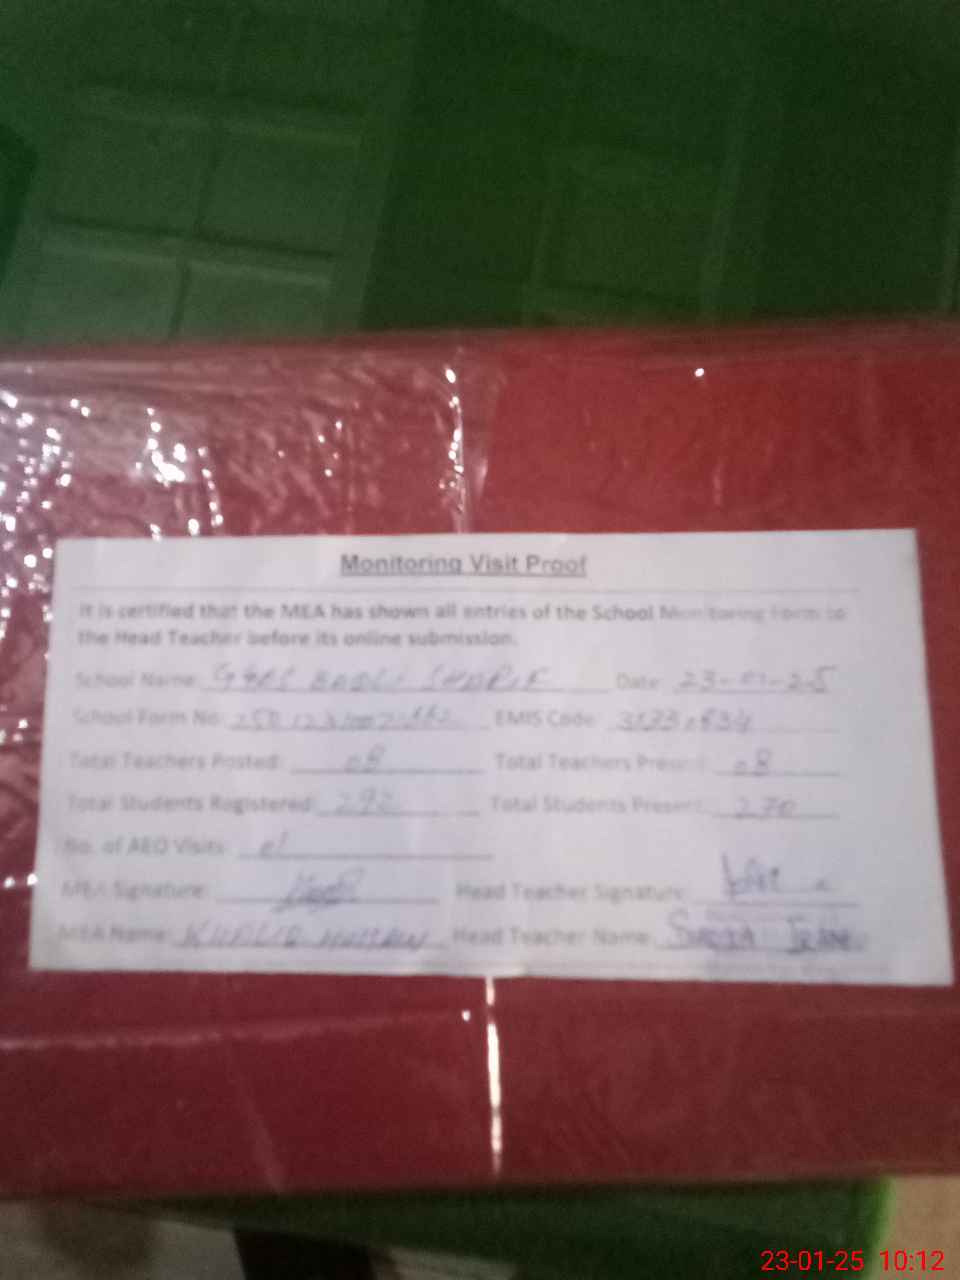 Monitoring Visit Proof
It is certified that the MEA has shown all entries of the School Monitoring Form to
the Head Teacher before its online submission.
School Name: SHARIF Date: 23-01-25
School Form No: EMIS Code:
Total Teachers Posted: 08 Total Teachers Present: 08
Total Students Registered: Total Students Present: 270
No. of AEO Visits: 01
MEA Signature: Head Teacher Signature:
MEA Name: KHALID HUSSAIN Head Teacher Name:
23-01-25 10:12